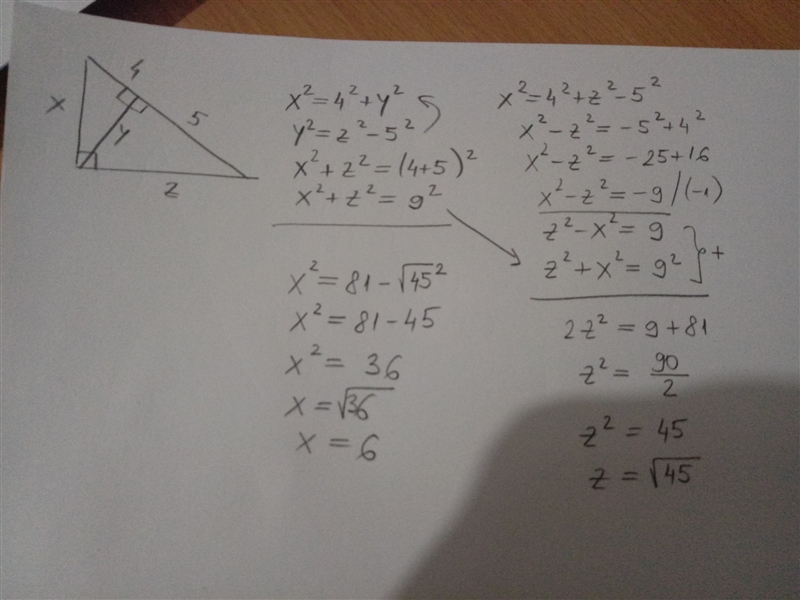 4
x
y
5
z
x² = 4² + y²
y² = z² - 5²
x² + z² = (4+5)²
x² + z² = 9²
x² = 81 - √45²
x² = 81 - 45
x² = 36
x = √36
x = 6
x² = 4² + z² - 5²
x² - z² = -5² + 4²
x² - z² = -25 + 16
x² - z² = -9 /(-1)
z² - x² = 9
z² + x² = 9² } +
2z² = 9 + 81
z² = 90/2
z² = 45
z = √45